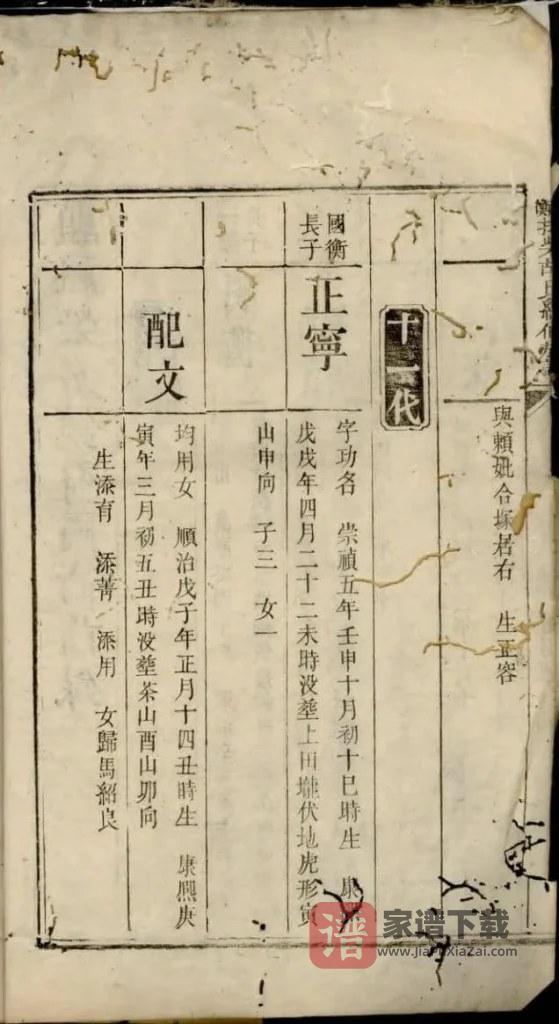 與賴妣合塚居右　生正容
十一代
國衡
長子
正寧
字功名　崇禎五年壬申十月初十巳時生　康
戊戌年四月二十二未時没塟上田壠伏地虎形寅
山申向　子三　女一
配文
均用女　順治戊子年正月十四丑時生　康熙庚
寅年三月初五丑時没塟茶山酉山卯向
生添育　添菁　添用　女歸馬紹良
譜
家谱下载
www.JiaPuXiaZai.com